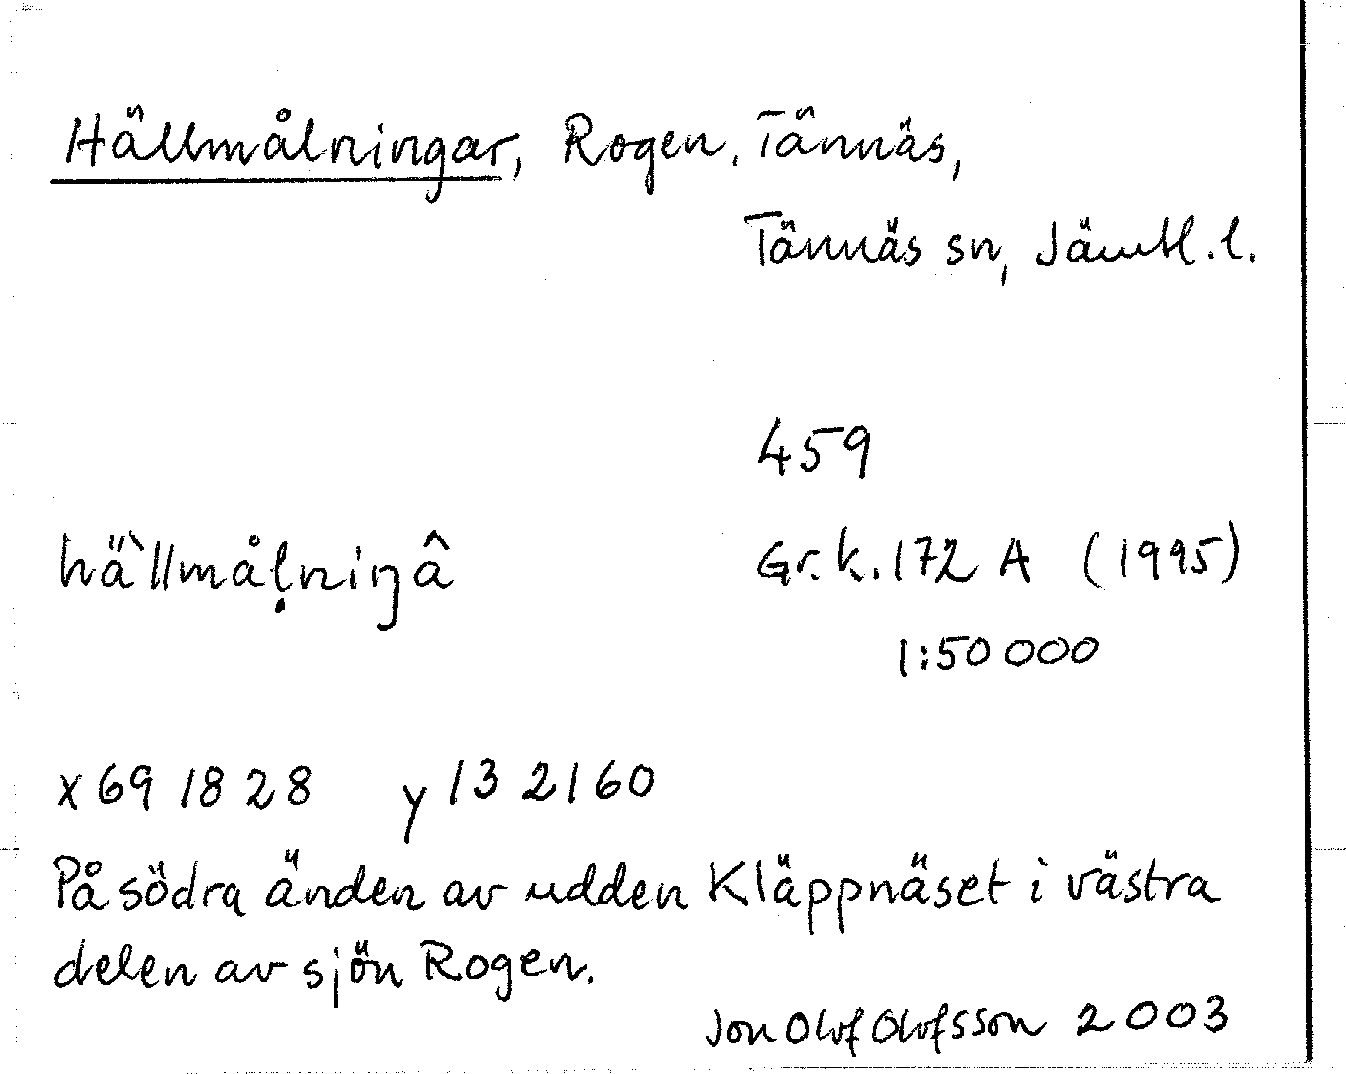 Hällmålningar, Rogen, Tännäs,
Tännäs sn, Jämtl. l.
459
hä̀llmåḷniŋâ
Gr. k. 172 A (1995)
1:50 000
x 69 18 28 y 13 21 60
På södra änden av udden Kläppnäset i västra
delen av sjön Rogen.
Jon Olof Olofsson 2003